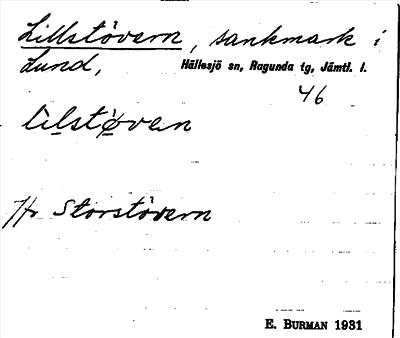 Lillstövern, sankmark i
Lund, Hällesjö sn, Ragunda tg, Jämtl. l.
46
lilstøvan
Jfr Storstövern
E. BURMAN 1931